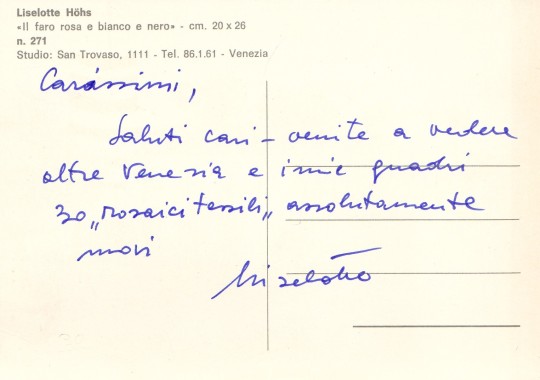 Liselotte Höhs
«Il faro rosa e bianco e nero» - cm. 20 x 26
n. 271
Studio: San Trovaso, 1111 - Tel. 86.1.61 - Venezia
Carissimi,
Saluti cari - venite a vedere
oltre Venezia e i miei quadri
30 „mosaici tessili„ assolutamente
nuovi
Liselotte